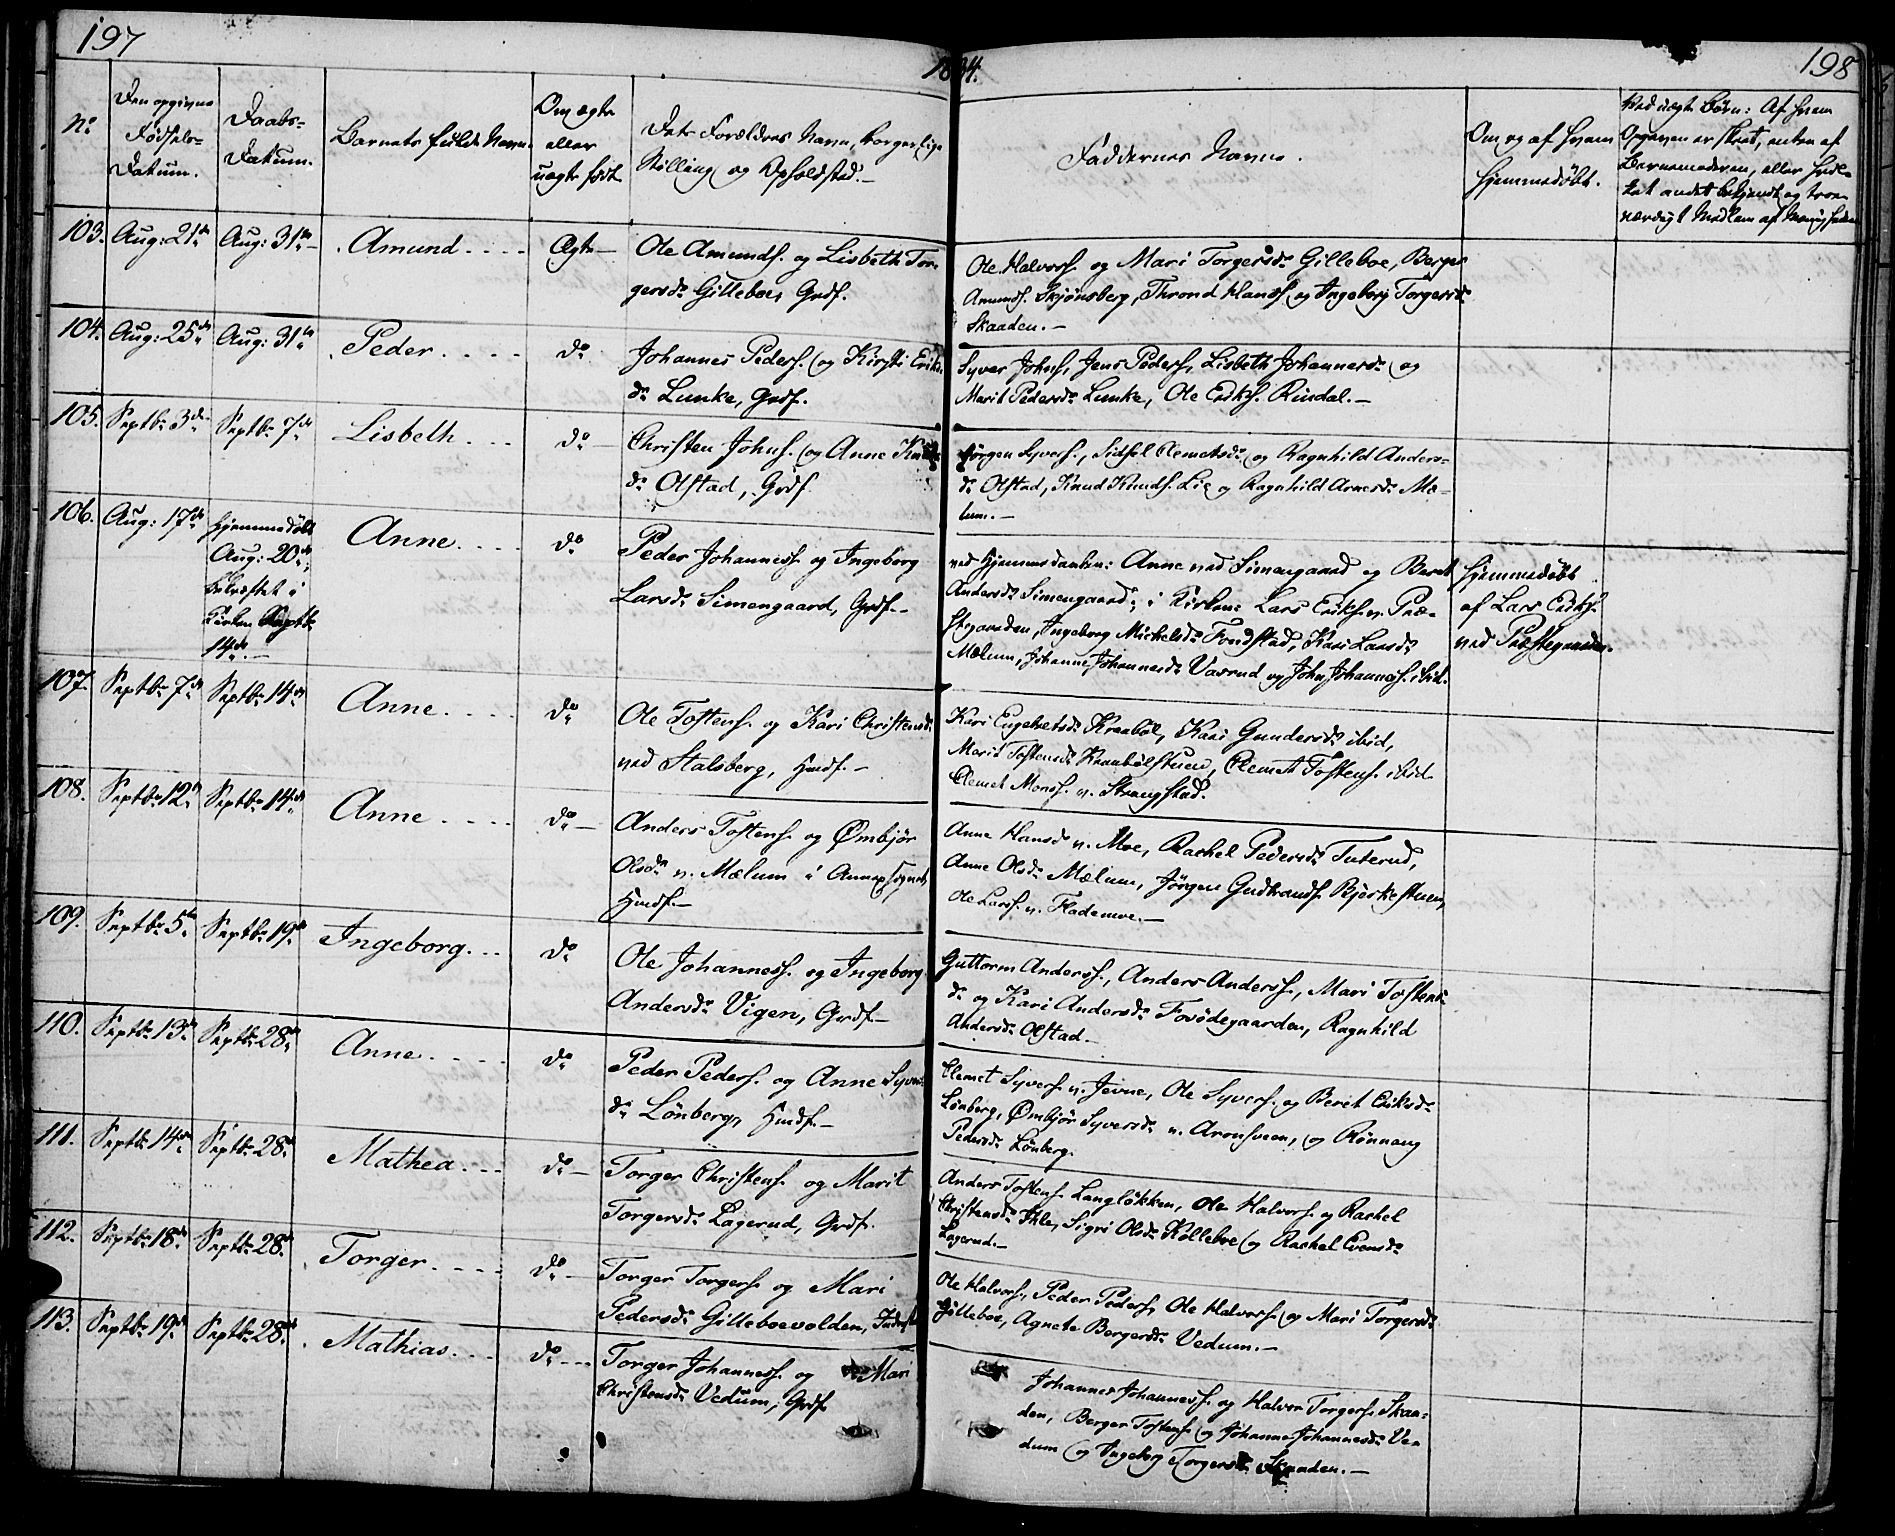 197
1834.
198
No
Den opgivne Fødsels-Datum.
Daabs-Datum.
Barnets fulde Navn.
Om ægte eller uægte født
Dets Forældres Navn, borgerlige Stilling og Opholdsted.—
Faddernes Navne.
Om og af hvem hjemmedøbt.
Ved uægte Børn: Af hvem Opgaven er skeet, enten af Barnemoderen, eller hvilket andet bekjendt og troeværdigt Medlem af Menigheden
103. Aug: 21de Aug: 31te Amund.... Ægte—
Ole Amunds. og Lisbeth Tor-
gersdr Gilleboe, Grdf.
Ole Halvors. og Mari Torgersdr Gilleboe, Berger
Amunds. Skjønsberg, Thrond Hans. og Ingeborg Torgersdr
Skaaden.—
104. Aug: 25de Aug: 31te Peder.... do
Johannes Peders. og Kirsti Eriks
dr Lunke, Grdf.
Syver Johns., Jens Peders., Lisbeth Johannesdr og
Marit Pedersdr Lunke, Ole Eriks. Rindal.—
105. Septbr 3de Septbr 7de Lisbeth... do
Christen Johns. og Anne Knuds
dr Olstad, Grdf.
Jørgen Syvers., Sidsel Clemetsdr og Ragnhild Anders-
dr Olstad, Knud Knuds. Lie og Ragnhild Arnesdr Mæ-
lum.—
106. Aug: 17de
hjemmedøbt
Aug: 20de;
bekræftet i
Kirken Septbr
14de.—
Anne.... do
Peder Johanness. og Ingeborg
Larsdr Simengaard, Grdf.—
ved Hjemmedaaben: Anne ved Simengaard og Beret
Andersdr Simengaard; i Kirken: Lars Eriks. v. Præ-
stgaarden, Ingeborg Mickelsdr Fondstad, Kari Larsdr
Mælum, Johanne Johannesdr Vasrud og John Johanness. ibid.
Hjemmedøbt
af Lars Eriks.
ved Præstegaarden.
107. Septbr 7de Septbr 14de Anne.... do
Ole Tostens. og Kari Christensdr
ved Stalsberg, Hmdf.—
Kari Engebretsdr Kraabøl, Kari Gundersdr ibid,
Marit Tostensdr Kraabølstuen, Clemet Tostens. ibid.
Clemet Mons. v. Strangstad.
108. Septbr 12te Septbr 14de Anne.... do—
Anders Tostens. og Ømbjør
Olsdr v. Mælum i Annexsognet
Hmdf.—
Anne Hansdr v. Moe, Rachel Pedersdr Tuterud,
Anne Olsdr Mælum, Jørgen Gudbrands. Bjerkestuen,
Ole Lars. v. Flademoe.—
109. Septbr 5te Septbr 19de Ingeborg... do
Ole Johanness. og Ingeborg
Andersdr Vigen, Grdf.—
Guttorm Anders., Anders Anders., Mari Tostens-
dr og Kari Andersdr Forødegaarden, Ragnhild
Andersdr Olstad.—
110. Septbr 13de Septbr 28de Anne.... do
Peder Peders. og Anne Syvers
dr Lönberg, Hmdf.—
Clemet Syvers. v. Jevne, Ole Syvers. og Beret Eriksdr
Lönberg, Ømbjør Syversdr v. Aronsveen, og Rønnaug
Pedersdr Lönberg.
111. Septbr 14de Septbr 28de Mathea... do—
Torger Christens. og Marit
Torgersdr Lagerud, Grdf.
Anders Tostens. Langløkken, Ole Halvors. og Rachel
Christensdr Ihle, Sigri Olsdr Kolleboe og Rachel Evensdr
Lagerud.—
112. Septbr 18de Septbr 28de Torger.... do—
Torger Torgers. og Mari
Pedersdr Gilleboevolden, Inderste
Ole Halvors., Peder Peders., Ole Halvors. og Mari Torgersdr
Gilleboe, Agnete Bergersdr Vedum.—
113. Septbr 19de Septbr 28de Mathias... do...
Torger Johanness. og Mari
Christensdr Vedum, Grdf.
Johannes Johanness. og Halvor Torgers. Skaa-
den, Berger Tostens. og Johanne Johannesdr Ve-
dum og Ingeborg Torgersdr Skaaden.—